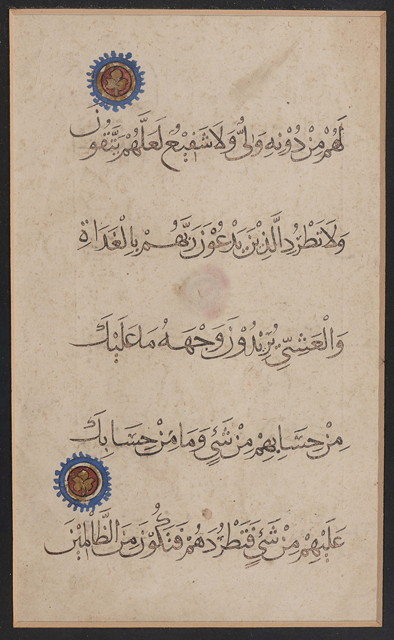 لَهُمْ مِنْ دُونِهِ وَلِيٌّ وَلَا شَفِيعٌ لَعَلَّهُمْ يَتَّقُونَ
وَلَا تَطْرُدِ الَّذِينَ يَدْعُونَ رَبَّهُمْ بِالْغَدَاةِ
وَالْعَشِيِّ يُرِيْدُونَ وَجْهَهُ مَا عَلَيْكَ
مِنْ حِسَابِهِمْ مِنْ شَيْءٍ وَمَا مِنْ حِسَابِكَ
عَلَيْهِمْ مِنْ شَيْءٍ فَتَطْرُدَهُمْ فَتَكُونَ مِنَ الظَّالِمِينَ